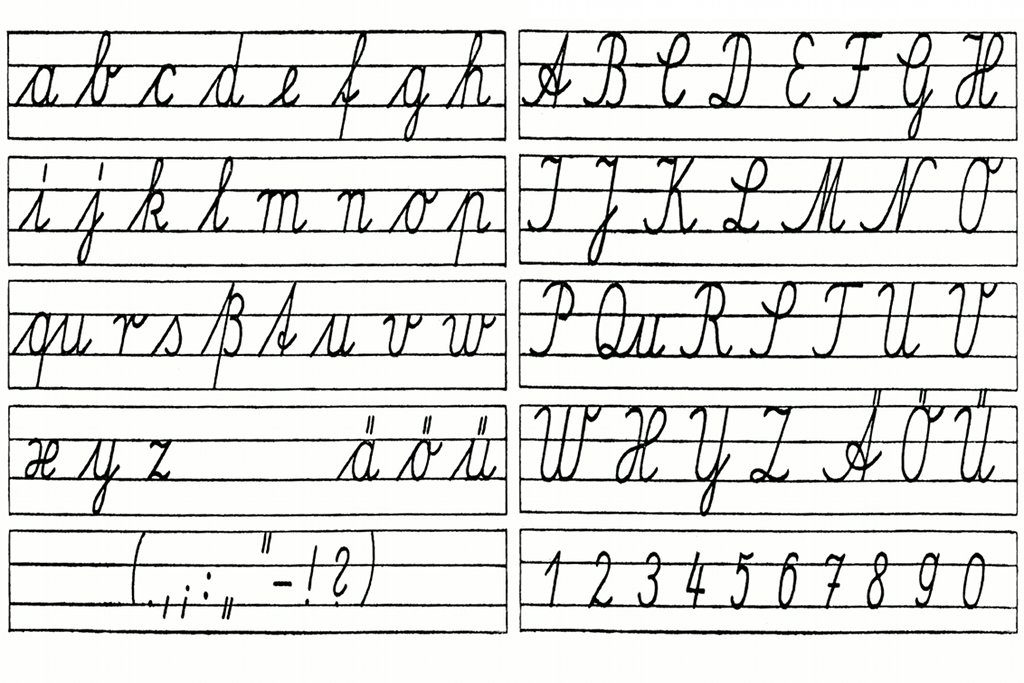 a b c d e f g h
i j k l m n o p
qu r s ß t u v w
x y z ä ö ü
( . , ; : „ " - ! ? )
A B C D E F G H
I J K L M N O
P Qu R S T U V
W X Y Z Ä Ö Ü
1 2 3 4 5 6 7 8 9 0